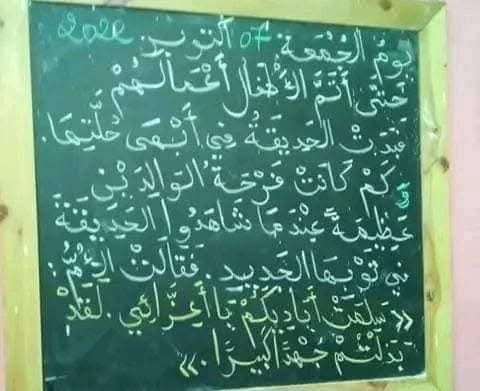 يَومُ الجُمُعَة 07 أكتوبر 2022
حَتَّى أَتَمَّ الأَطْفَالُ أَعْمَالَهُمْ
فَبَدَتْ الحَدِيقَةُ فِي أَبْهَى حُلَّتِهَا.
كَمْ كَانَتْ فَرْحَةُ الوَالِدَيْنِ
عَظِيمَةً عِنْدَمَا شَاهَدُوا الحَدِيقَةَ
فِي ثَوْبِهَا الجَدِيدِ. فَقَالَتْ الأُمُّ:
«سَلِمَتْ أَيَادِيكُمْ يَا أَعِزَّائِي. لَقَدْ
بَذَلْتُمْ جُهْدًا كَبِيرًا.»